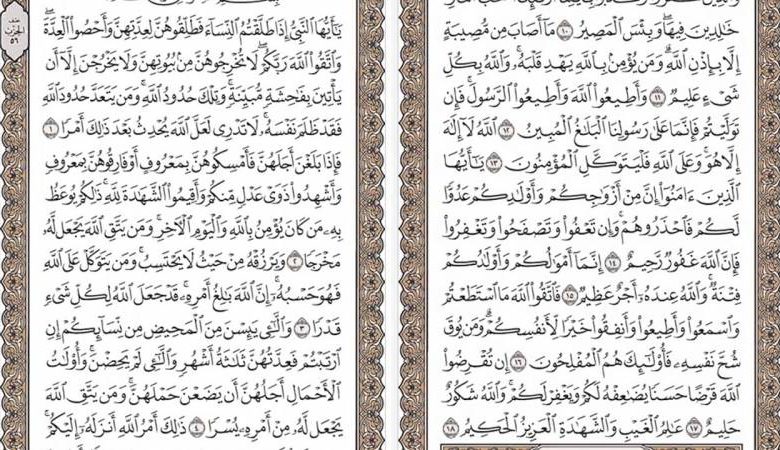 خَالِدِينَ فِيهَا ۖ وَبِئْسَ ٱلْمَصِيرُ ١٠ مَآ أَصَابَ مِن مُّصِيبَةٍ
إِلَّا بِإِذْنِ ٱللَّهِ ۗ وَمَن يُؤْمِنۢ بِٱللَّهِ يَهْدِ قَلْبَهُۥ ۚ وَٱللَّهُ بِكُلِّ
شَىْءٍ عَلِيمٌ ١١ وَأَطِيعُوا۟ ٱللَّهَ وَأَطِيعُوا۟ ٱلرَّسُولَ ۚ فَإِن
تَوَلَّيْتُمْ فَإِنَّمَا عَلَىٰ رَسُولِنَا ٱلْبَلَٰغُ ٱلْمُبِينُ ١٢ ٱللَّهُ لَآ إِلَٰهَ
إِلَّا هُوَ ۚ وَعَلَى ٱللَّهِ فَلْيَتَوَكَّلِ ٱلْمُؤْمِنُونَ ١٣ يَٰٓأَيُّهَا
ٱلَّذِينَ ءَامَنُوٓا۟ إِنَّ مِنْ أَزْوَٰجِكُمْ وَأَوْلَٰدِكُمْ عَدُوًّا
لَّكُمْ فَٱحْذَرُوهُمْ ۚ وَإِن تَعْفُوا۟ وَتَصْفَحُوا۟ وَتَغْفِرُوا۟
فَإِنَّ ٱللَّهَ غَفُورٌ رَّحِيمٌ ١٤ إِنَّمَآ أَمْوَٰلُكُمْ وَأَوْلَٰدُكُمْ
فِتْنَةٌ ۚ وَٱللَّهُ عِندَهُۥٓ أَجْرٌ عَظِيمٌ ١٥ فَٱتَّقُوا۟ ٱللَّهَ مَا ٱسْتَطَعْتُمْ
وَٱسْمَعُوا۟ وَأَطِيعُوا۟ وَأَنفِقُوا۟ خَيْرًا لِّأَنفُسِكُمْ ۗ وَمَن يُوقَ
شُحَّ نَفْسِهِۦ فَأُو۟لَٰٓئِكَ هُمُ ٱلْمُفْلِحُونَ ١٦ إِن تُقْرِضُوا۟
ٱللَّهَ قَرْضًا حَسَنًا يُضَٰعِفْهُ لَكُمْ وَيَغْفِرْ لَكُمْ ۚ وَٱللَّهُ شَكُورٌ
حَلِيمٌ ١٧ عَٰلِمُ ٱلْغَيْبِ وَٱلشَّهَٰدَةِ ٱلْعَزِيزُ ٱلْحَكِيمُ ١٨
يَٰٓأَيُّهَا ٱلنَّبِىُّ إِذَا طَلَّقْتُمُ ٱلنِّسَآءَ فَطَلِّقُوهُنَّ لِعِدَّتِهِنَّ وَأَحْصُوا۟ ٱلْعِدَّةَ ۖ
وَٱتَّقُوا۟ ٱللَّهَ رَبَّكُمْ ۖ لَا تُخْرِجُوهُنَّ مِنۢ بُيُوتِهِنَّ وَلَا يَخْرُجْنَ إِلَّآ أَن
يَأْتِينَ بِفَٰحِشَةٍ مُّبَيِّنَةٍ ۚ وَتِلْكَ حُدُودُ ٱللَّهِ ۚ وَمَن يَتَعَدَّ حُدُودَ ٱللَّهِ
فَقَدْ ظَلَمَ نَفْسَهُۥ ۚ لَا تَدْرِى لَعَلَّ ٱللَّهَ يُحْدِثُ بَعْدَ ذَٰلِكَ أَمْرًا ١
فَإِذَا بَلَغْنَ أَجَلَهُنَّ فَأَمْسِكُوهُنَّ بِمَعْرُوفٍ أَوْ فَارِقُوهُنَّ بِمَعْرُوفٍ
وَأَشْهِدُوا۟ ذَوَىْ عَدْلٍ مِّنكُمْ وَأَقِيمُوا۟ ٱلشَّهَٰدَةَ لِلَّهِ ۚ ذَٰلِكُمْ يُوعَظُ
بِهِۦ مَن كَانَ يُؤْمِنُ بِٱللَّهِ وَٱلْيَوْمِ ٱلْـَٔاخِرِ ۚ وَمَن يَتَّقِ ٱللَّهَ يَجْعَل لَّهُۥ
مَخْرَجًا ٢ وَيَرْزُقْهُ مِنْ حَيْثُ لَا يَحْتَسِبُ ۚ وَمَن يَتَوَكَّلْ عَلَى ٱللَّهِ
فَهُوَ حَسْبُهُۥٓ ۚ إِنَّ ٱللَّهَ بَٰلِغُ أَمْرِهِۦ ۚ قَدْ جَعَلَ ٱللَّهُ لِكُلِّ شَىْءٍ
قَدْرًا ٣ وَٱلَّٰٓـِٔى يَئِسْنَ مِنَ ٱلْمَحِيضِ مِن نِّسَآئِكُمْ إِنِ
ٱرْتَبْتُمْ فَعِدَّتُهُنَّ ثَلَٰثَةُ أَشْهُرٍ وَٱلَّٰٓـِٔى لَمْ يَحِضْنَ ۚ وَأُو۟لَٰتُ
ٱلْأَحْمَالِ أَجَلُهُنَّ أَن يَضَعْنَ حَمْلَهُنَّ ۚ وَمَن يَتَّقِ ٱللَّهَ
يَجْعَل لَّهُۥ مِنْ أَمْرِهِۦ يُسْرًا ٤ ذَٰلِكَ أَمْرُ ٱللَّهِ أَنزَلَهُۥٓ إِلَيْكُمْ ۚ